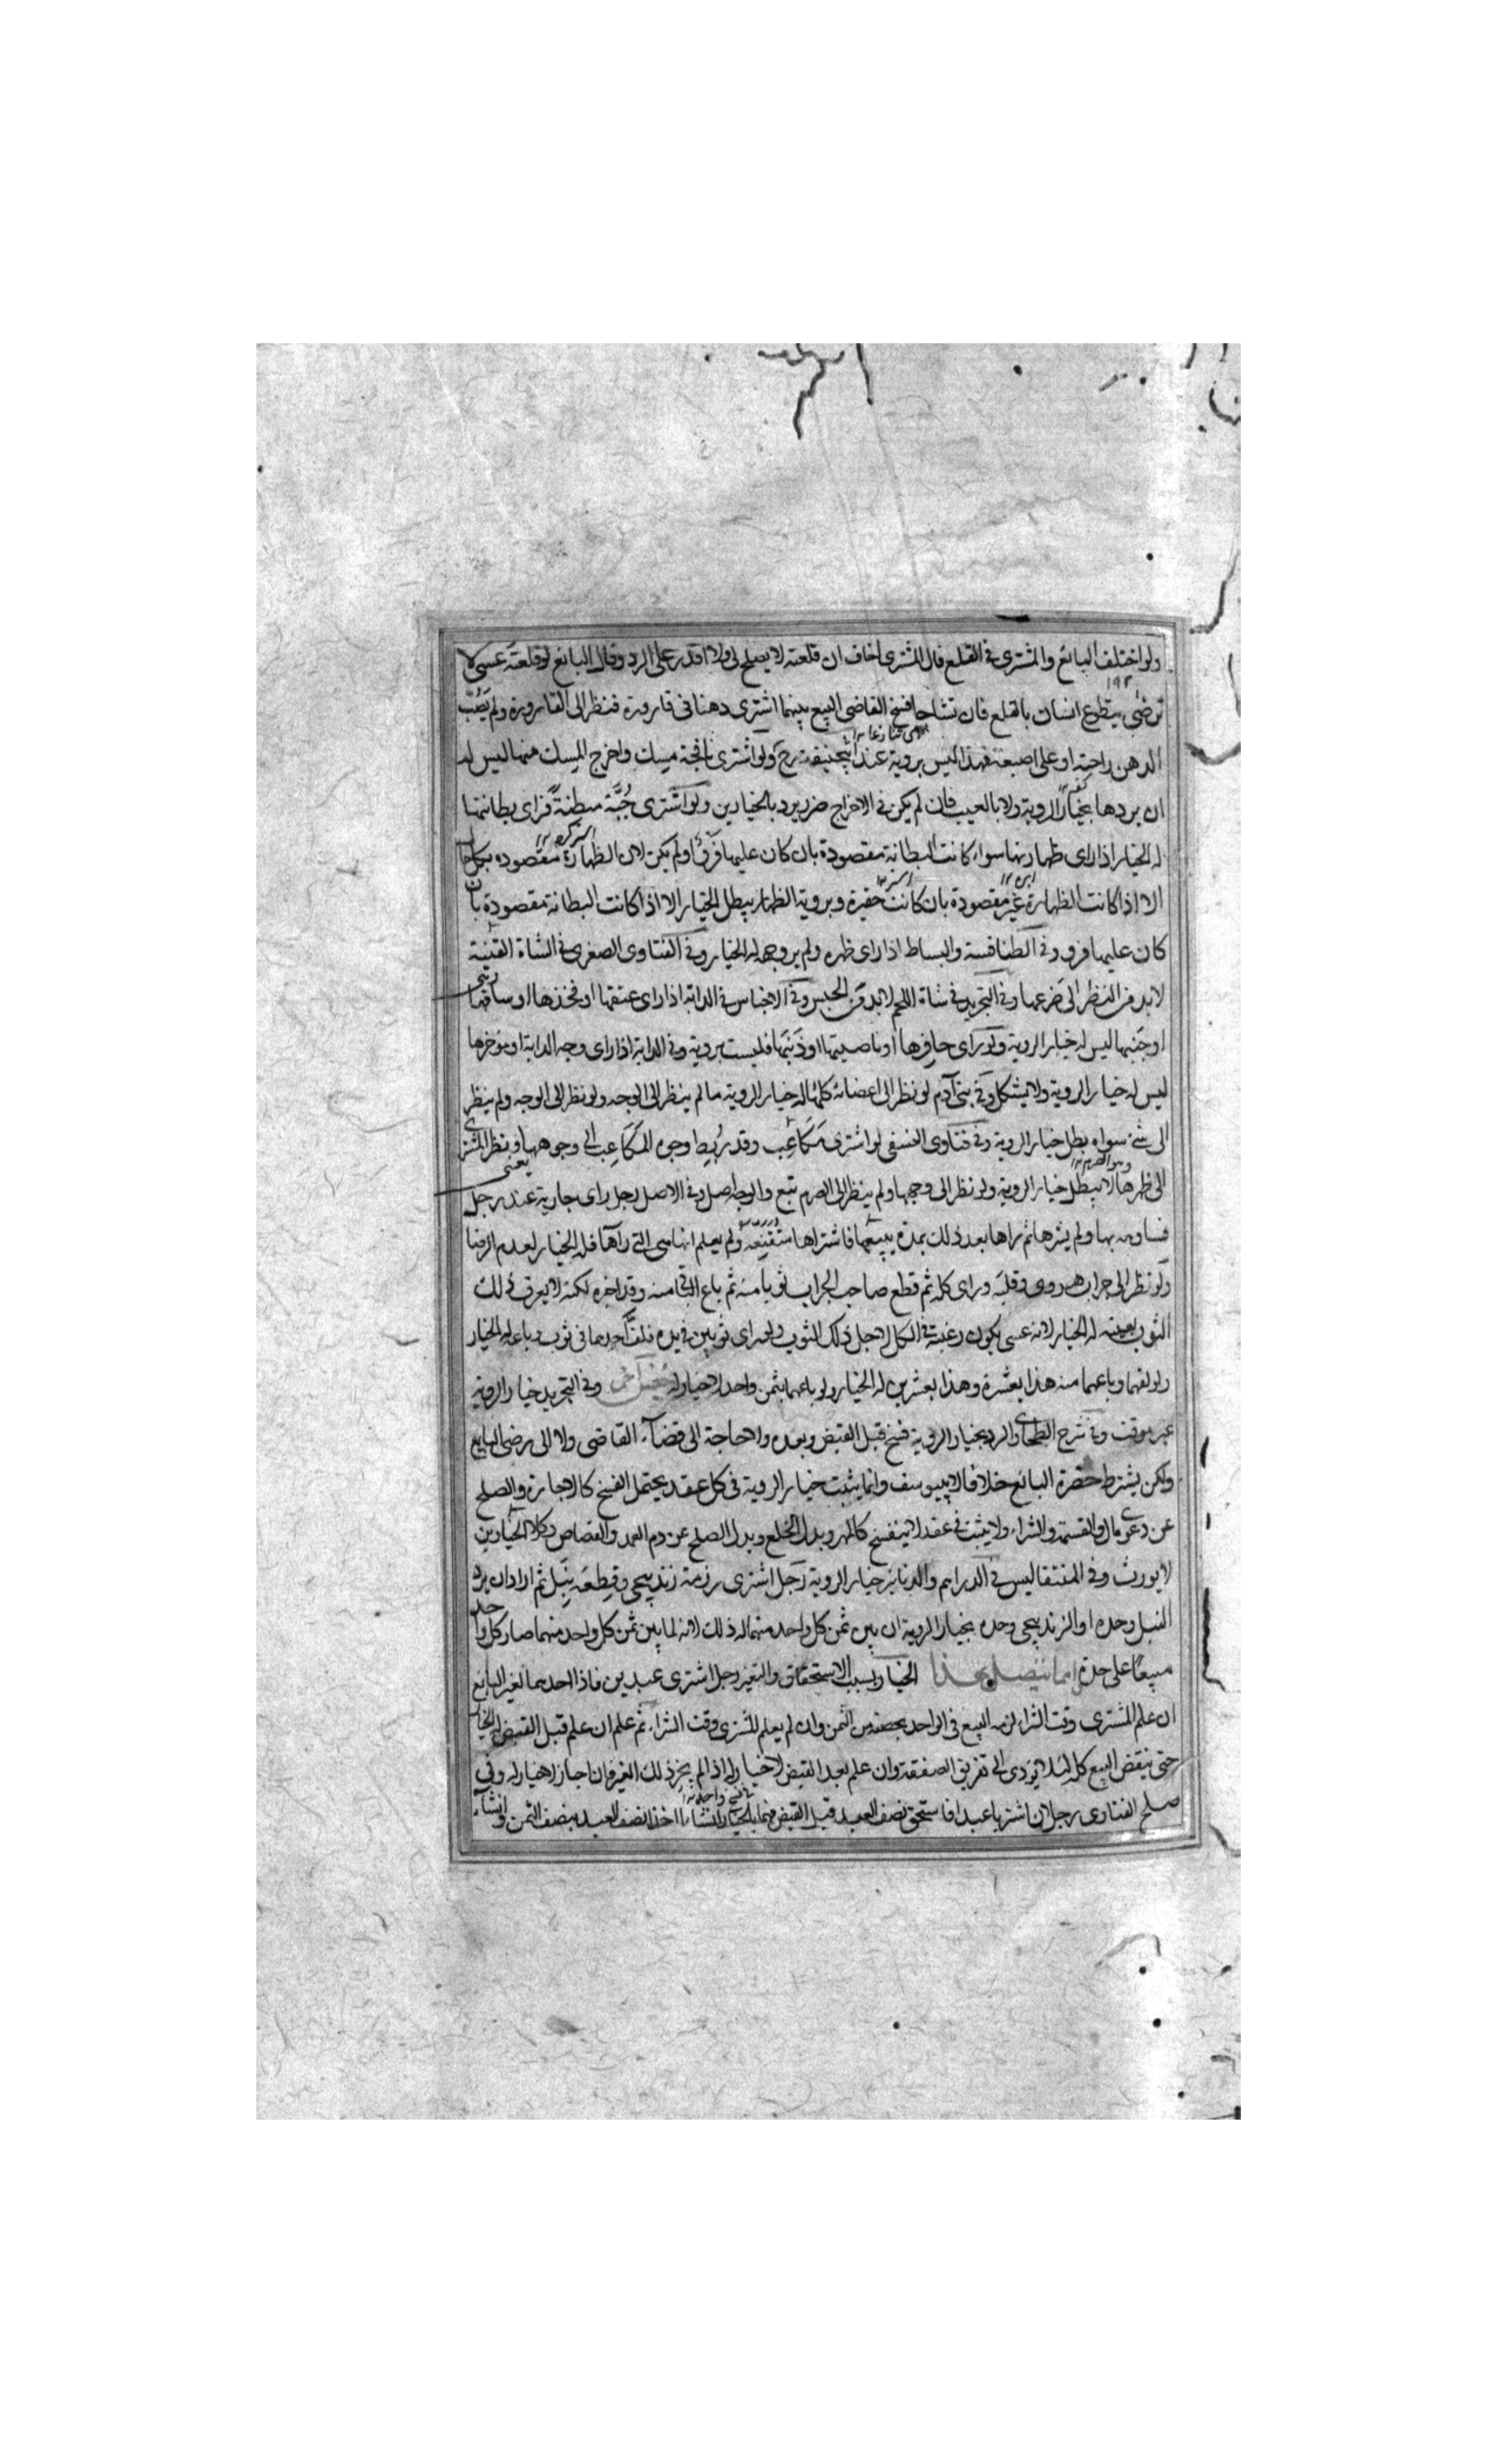 ولو اختلف البائع والمشتري في القلع فقال المشتري اخاف ان قلعته لا يصلح لي ولا اقدر على الرد وقال البائع لو قلعته عسى لا
ترضى يتطوع انسان بالقلع فان تشاحا فسخ القاضي البيع بينهما اشترى دهنا في قارورة فنظر الى القارورة ولم يَصُبّ
الدهن راحته او على اصبعه فهذا ليس بروية عند ابيحنيفة رح ولو اشترى نافجة مسك واخرج المسك منها ليس له
ان يردها بخيار الروية ولا بالعيب فان لم يكن في الاخراج ضرر يرد بالخيارين ولو اشترى جُبَّة مبطنةً فراى بطانتها
له الخيار اذا راى ظهارتها سواء كانت البطانة مقصودة بان كان عليها فرو او لم يكن لان الظهارة مقصوده بكل حال
الا اذا كانت الظهارة غير مقصودة بان كانت حقيرة وبروية الظهار يبطل الخيار الا اذا كانت البطانة مقصودة بان
كان عليها فرو وفي الطنافسة والبساط اذا راى ظهره ولم ير وجهه له الخيار وفي الفتاوى الصغرى في الشاة القنية
لا بد من النظر الى ضرعها وفي التجريد في شاة اللحم لا بد من الجس وفي الاجناس في الدابة اذا راى عنقها او فخذها او ساقها
او جنبها ليس له خيار الروية ولو راى حافرها او ناصيتها او ذنبها فليست بروية وفي الدابة اذا راى وجه الدابة او موخرها
ليس له خيار الروية ولا يشكل وفي بني آدم لو نظر الى اعضائه كلها له خيار الروية ما لم ينظر الى الوجه ولو نظر الى الوجه ولم ينظر
الى شئ سواه بطل خيار الروية وفي فتاوى النسفي لو اشترى مَكَاعِب وقد رُبط وجوه المَكَاعِب الى وجوهها ونظر المشتري
الى ظهرها لا يبطل خيار الروية ولو نظر الى وجهها ولم ينظر الى الصرم تبع والوجه اصل وفي الاصل رجل راى جارية عند رجل
فساومه بها ولم يشرها ثم راها بعد ذلك بمدة يبيعها فاشتراها متقنعة ولم يعلم انها هي التي رآها فله الخيار لعدم الرضا
ولو نظر الى جراب هروي وقلبه وراى كله ثم قطع صاحب الجراب ثوبا منه ثم باع الباقي منه وقد اخبره لكنه لا يعرف ذلك
الثوب بعينه له الخيار لانه عسى يكون رغبته في الكل لاجل ذلك الثوب ولو راى ثوبين في يده فلفّ احدهما في ثوب وباعه له الخيار
ولو لفهما وباعهما منه هذا بعشرة وهذا بعشرين له الخيار ولو باعهما بثمن واحد لا خيار له جنس آخر وفي التجريد خيار الروية
غير موقت وفي شرح الطحاوي الرد بخيار الروية فسخ قبل القبض وبعده ولا حاجة الى قضاء القاضي ولا الى رضى البايع
ولكن يشترط حضرة البائع خلافا لابييوسف وانما يثبت خيار الروية في كل عقد يحتمل الفسخ كالاجارة والصلح
عن دعوى مال والقسمة والشراء ولا يثبت في عقد لا ينفسخ كالمهر وبدل الخلع وبدل الصلح عن دم العمد والقصاص وكلا الخيارين
لا يورث وفي المنتقا ليس في الدراهم والدنانير خيار الروية رجل اشترى رزمة زندبيجي وقطعة نيل ثم اراد ان يرد
النيل وحده او الزندبيجي وحده بخيار الروية ان بين ثمن كل واحد منهما له ذلك لانه لما بين ثمن كل واحد منهما صار كل واحد
مبيعا على حدة اما يتصل بهذا الخيار بسبب الاستحقاق والتغير رجل اشترى عبدين فاذا احدهما لغير البايع
ان علم المشتري وقت الشراء لزمه البيع في الواحد بحصته من الثمن وان لم يعلم المشتري وقت الشراء ثم علم ان علم قبل القبض له الخيار
حتى ينقض البيع كله لئلا يودي الى تفريق الصفقة وان علم بعد القبض لا خيار له اذا لم يجز ذلك الغير فان اجاز لا خيار له وفي
صلح الفتاوى رجلان اشتريا عبدا فاستحق نصف العبد قبل القبض فهما بالخيار ان شاءا اخذا نصف العبد بنصف الثمن وان شاء